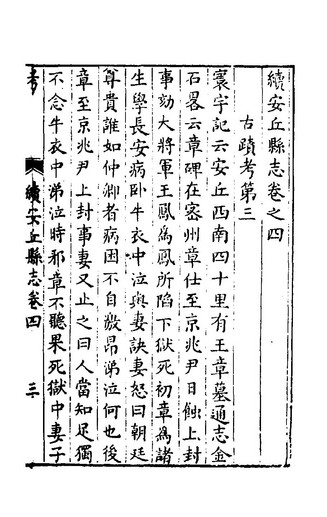 續安丘縣志卷之四
古蹟考第三
寰宇記云安丘西南四十里有王章墓通志金
石畧云章碑在密州章仕至京兆尹日蝕上封
事劾大將軍王鳳為鳳所陷下獄死初章為諸
生學長安病卧牛衣中泣與妻訣妻怒曰朝廷
尊貴誰如仲卿者病困不自激昂涕泣何也後
章至京兆尹上封事妻又止之曰人當知足獨
不念牛衣中涕泣時邪章不聽果死獄中妻子
續安丘縣志卷四 三
考